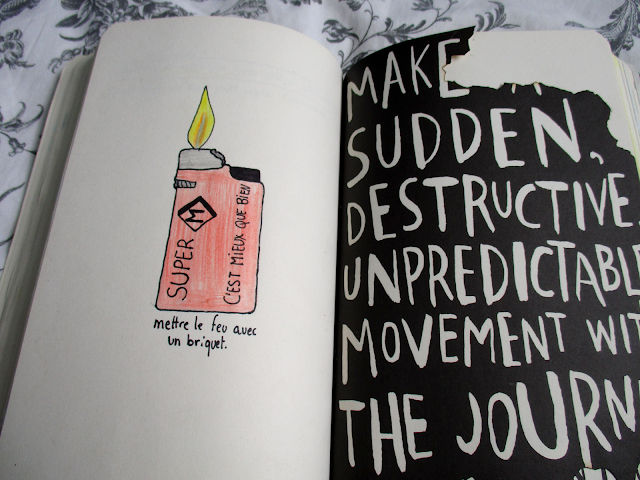 SUPER M
C'EST MIEUX QUE BIEN
mettre le feu avec
un briquet.
MAKE
SUDDEN,
DESTRUCTIVE,
UNPREDICTABLE
MOVEMENT WIT
THE JOURN